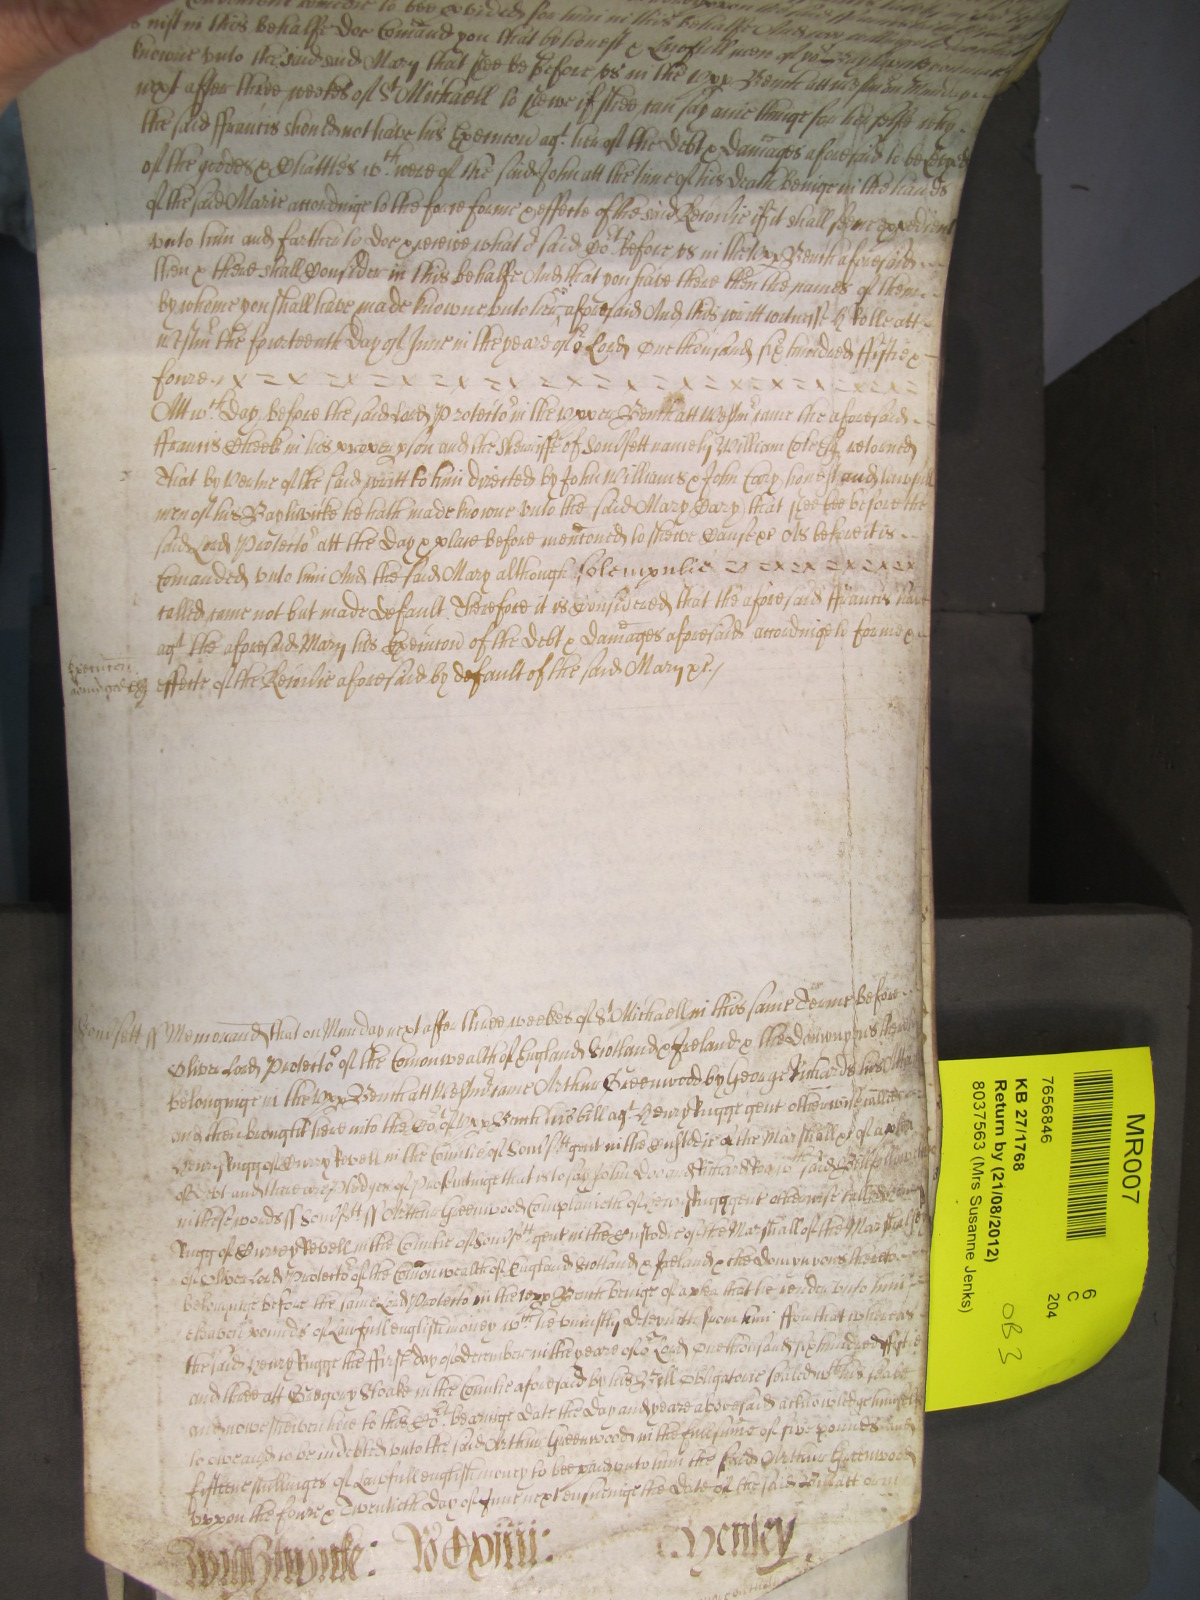 convenient remedie to bee provided for him in this behalfe And
is iust in this behalfe Doe Comand you that by honest & Lawfull men of
knowne unto the said Mary that shee be before us in the upp Bench att
next after three weekes of St Michaell to shewe if shee can say anie thinge for her selfe why
the said ffrancis should not have his Execucon agt. her of the Debt & Damages aforesaid to be
of the goodes & Chattles wch. were of the said John att the time of his Death beinge in the hands
of the said Marie accordinge to the force forme & effecte of the said Recoverie if it shall seeme expedient
unto him and farther to Doe & receive what ye said Cort. before us in the upp Bench aforesaid
then & there shall Consider in this behalfe And that you have there then the names of them
by whome you shall have made knowne unto her aforesaid And this writt witnesse H Rolle att
Westmr the fowerteenth Day of June in the yeare of or Lord One thousand six hundred fiftie &
foure
Att wch. Day before the said Lord Protector in the upper Bench att Westmr came the aforesaid
ffrancis Cheek in his proper pson and the sheriffe of Somsett namely William Cole Esq returned
That by vertue of the said writt to him directed by John Williams & John Cary honest and lawfull
men of his Bayliwicke he hath made knowne unto the said Mary Cary that shee bee before the
said Lord Protector att the Day & place before mencioned to shewe Cause &c As before it is
Comanded unto him And the said Mary although solempnlie
called came not but made Default Therefore it is Considered that the aforesaid ffrancis have
agt. the aforesaid Mary his Execucon of the Debt & Damages aforesaid accordinge to forme &
Execucon
effecte of the Recoverie aforesaid by default of the said Mary &c.
Somsett ss Memorand that on Munday next after three weekes of St Michaell in this same Terme Before
Oliver Lord Protector of the Comonwealth of England Scotland & Ireland & the Dominions thereto
belonginge in the upp Bench att Westmr came Arthur Greenwood by George Richards his
and then brought here into the Cort. of upp Bench his bill agt. Henry Rugge gent otherwise called
Henry Rugg of Currey Revell in the Countie of Somsett gent in the Custodie of the Marshall &c of a plea
of Debt and there are Pledges of Prosecutinge that is to say John Doe and Richard Roe wch. said Bill followeth
in these words ss Somsett ss Arthur Greenwood Complaineth of Henry Rugge gent otherwise called Henry
Rugg of Currey Revell in the Countie of Somsett gent in the Custodie of the Marshall of the Marshalsey
of Oliver Lord Protector of the Comonwealth of England Scotland & Ireland & the Dominions thereto
belonginge before the same Lord Protector in the upp Bench beinge of a plea that he render unto him
eleaven pounds of Lawfull english money wch. he uniustly deteyneth from him ffor that whereas
the said Henry Rugge the ffirst day of December in the yeare of or Lord One thousand six hundred fiftie
and three att Gregory Stoake in the Countie aforesaid by his bill Obligatorie sealed wth his seale
and nowe shewen here to this Cort. bearinge date the Day and yeare abovesaid acknowledge himselfe
to owe and to be indebted unto the said Arthur Greenwood in the sume of five pounds and
fifteene shillinges of Lawfull english money to bee paid unto him the said Arthur Greenwood
uppon the foure & twentieth day of June next ensueinge the date of the said
Wightwicke: Henley
MR007
6
C
204
7656846
KB 27/1768
Return by (21/08/2012)
8037563 (Mrs Susanne Jenks)
OB 3